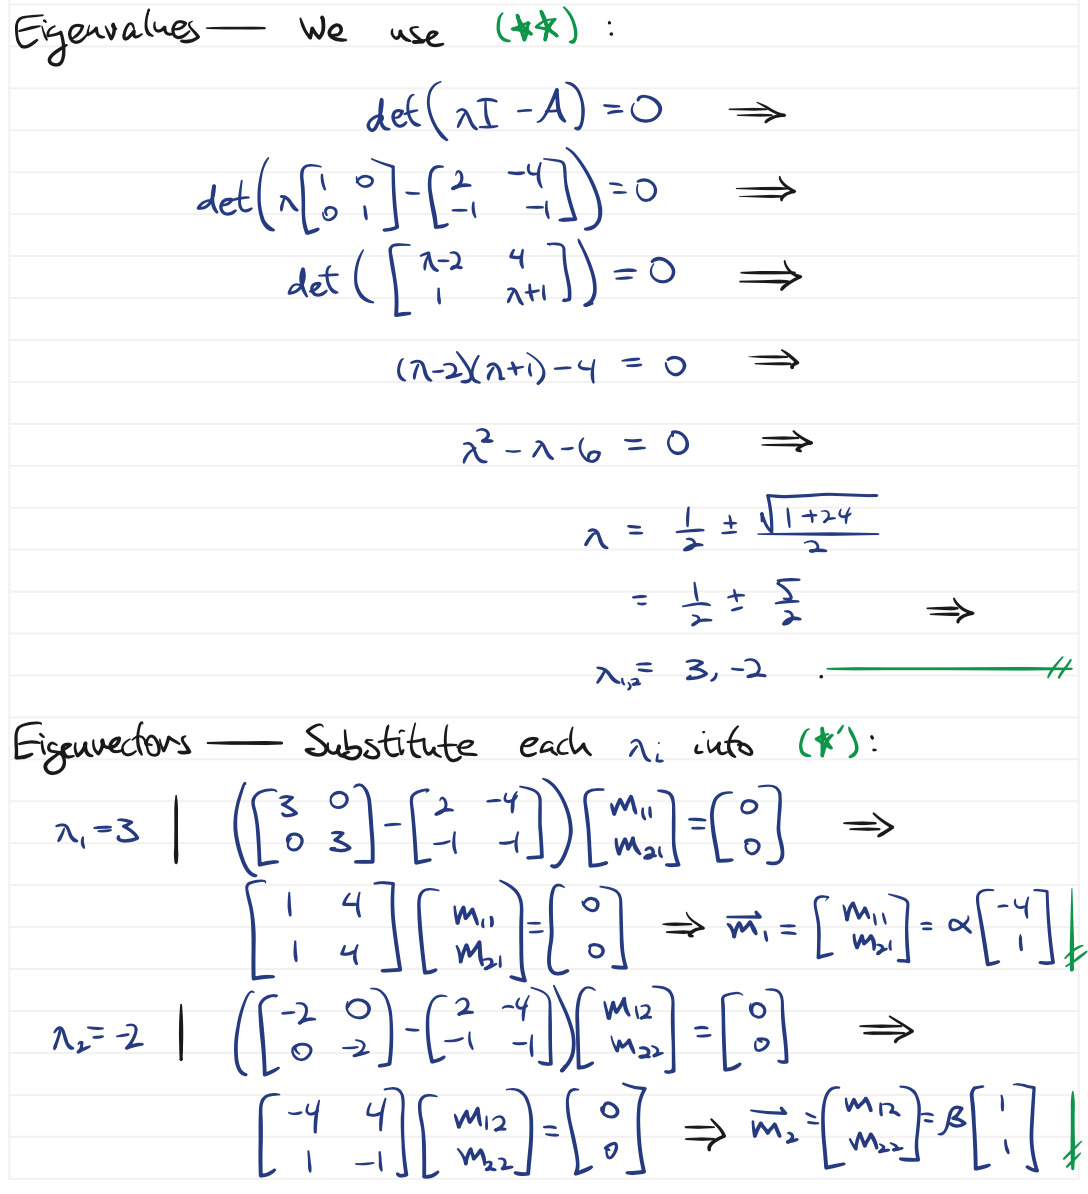 Eigenvalues — We use (★★) :
det(λI - A) = 0 ⟹
det(λ[1 0; 0 1] - [2 -4; -1 -1]) = 0 ⟹
det([λ-2 4; 1 λ+1]) = 0 ⟹
(λ-2)(λ+1) - 4 = 0 ⟹
λ² - λ - 6 = 0 ⟹
λ = 1/2 ± √(1+24)/2
= 1/2 ± 5/2 ⟹
λ₁,₂ = 3, -2 .
Eigenvectors — Substitute each λᵢ into (★') :
λ₁ = 3 | ([3 0; 0 3] - [2 -4; -1 -1]) [m₁₁; m₂₁] = [0; 0] ⟹
[1 4; 1 4] [m₁₁; m₂₁] = [0; 0] ⟹ m⃗₁ = [m₁₁; m₂₁] = α[-4; 1]
λ₂ = -2 | ([-2 0; 0 -2] - [2 -4; -1 -1]) [m₁₂; m₂₂] = [0; 0] ⟹
[-4 4; 1 -1] [m₁₂; m₂₂] = [0; 0] ⟹ m⃗₂ = [m₁₂; m₂₂] = β[1; 1]